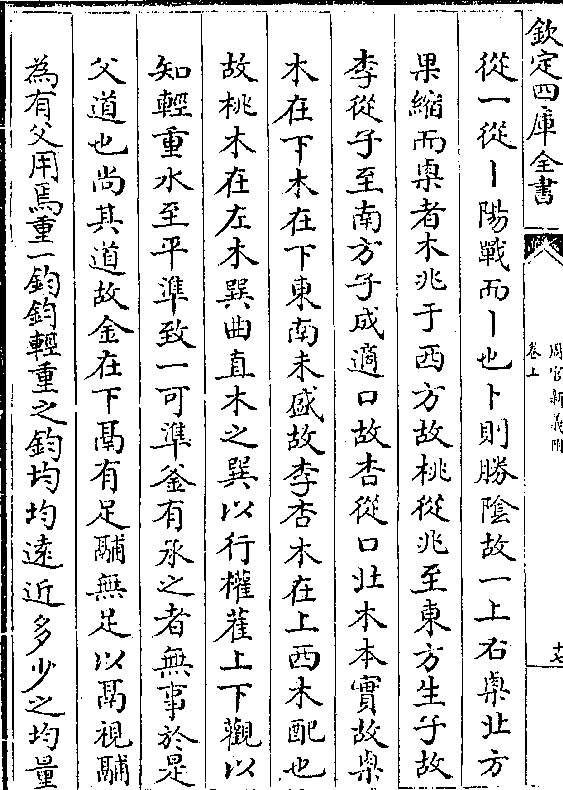 欽定四庫全書
周官新義附
卷上
十七
從一從丨陽戰而丨也卜則勝陰故一上右㮚北方
果縮而㮚者木兆于西方故桃從兆至東方生子故
李從子至南方子成適口故杏從口北木本實故㮚
木在下木在下東南未盛故李杏木在上西木配也
故桃木在左木巽曲直木之巽以行權雚上下觀以
知輕重水至平準致一可準釜有承之者無事於是
父道也尚其道故金在下鬲有足鬴無足以鬲視鬴
為有父用焉重一鈞鈞輕重之鈞均均遠近多少之均量